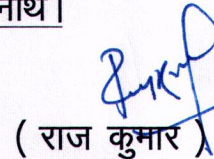 नाथ।
( राज कुमार )